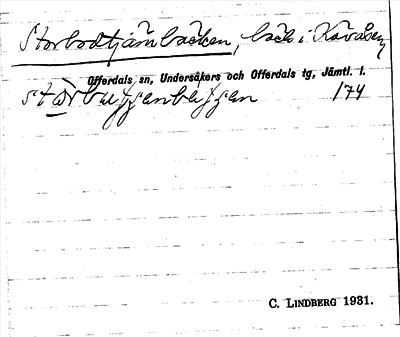 Storbodtjärnbäcken, bäck i Kövåsen
Offerdals sn, Undersåkers och Offerdals tg, Jämtl. l.
174
C. LINDBERG 1931.